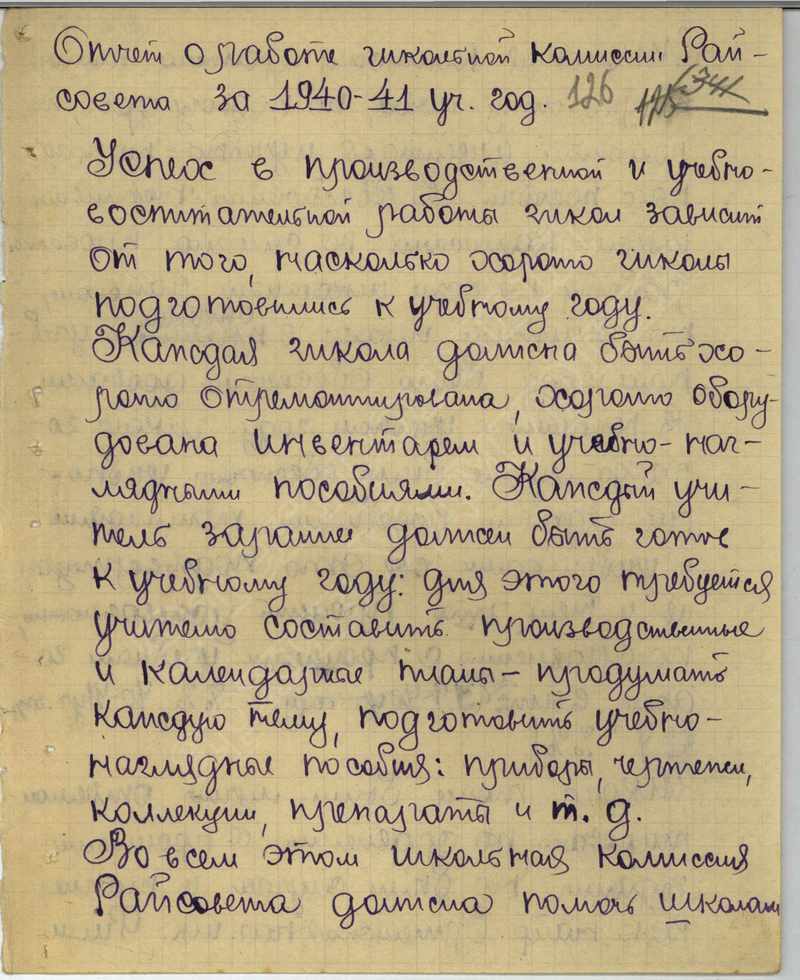 Отчет о работе школьной комиссии Рай-
совета за 1940-41 уч. год. 126
Успех в производственной и учебно-
воспитательной работы школ зависит
от того, насколько хорошо школы
подготовились к учебному году.
Каждая школа должна быть хо-
рошо отремонтирована, хорошо обору-
дована инвентарем и учебно-наг-
лядными пособиями. Каждый учи-
тель заранее должен быть готов
к учебному году: для этого требуется
учителю составить производственные
и календарные планы - продумать
каждую тему, подготовить учебно-
наглядные пособия: приборы, чертежи,
коллекции, препараты и т. д.
Во всем этом школьная комиссия
Райсовета должна помочь школам